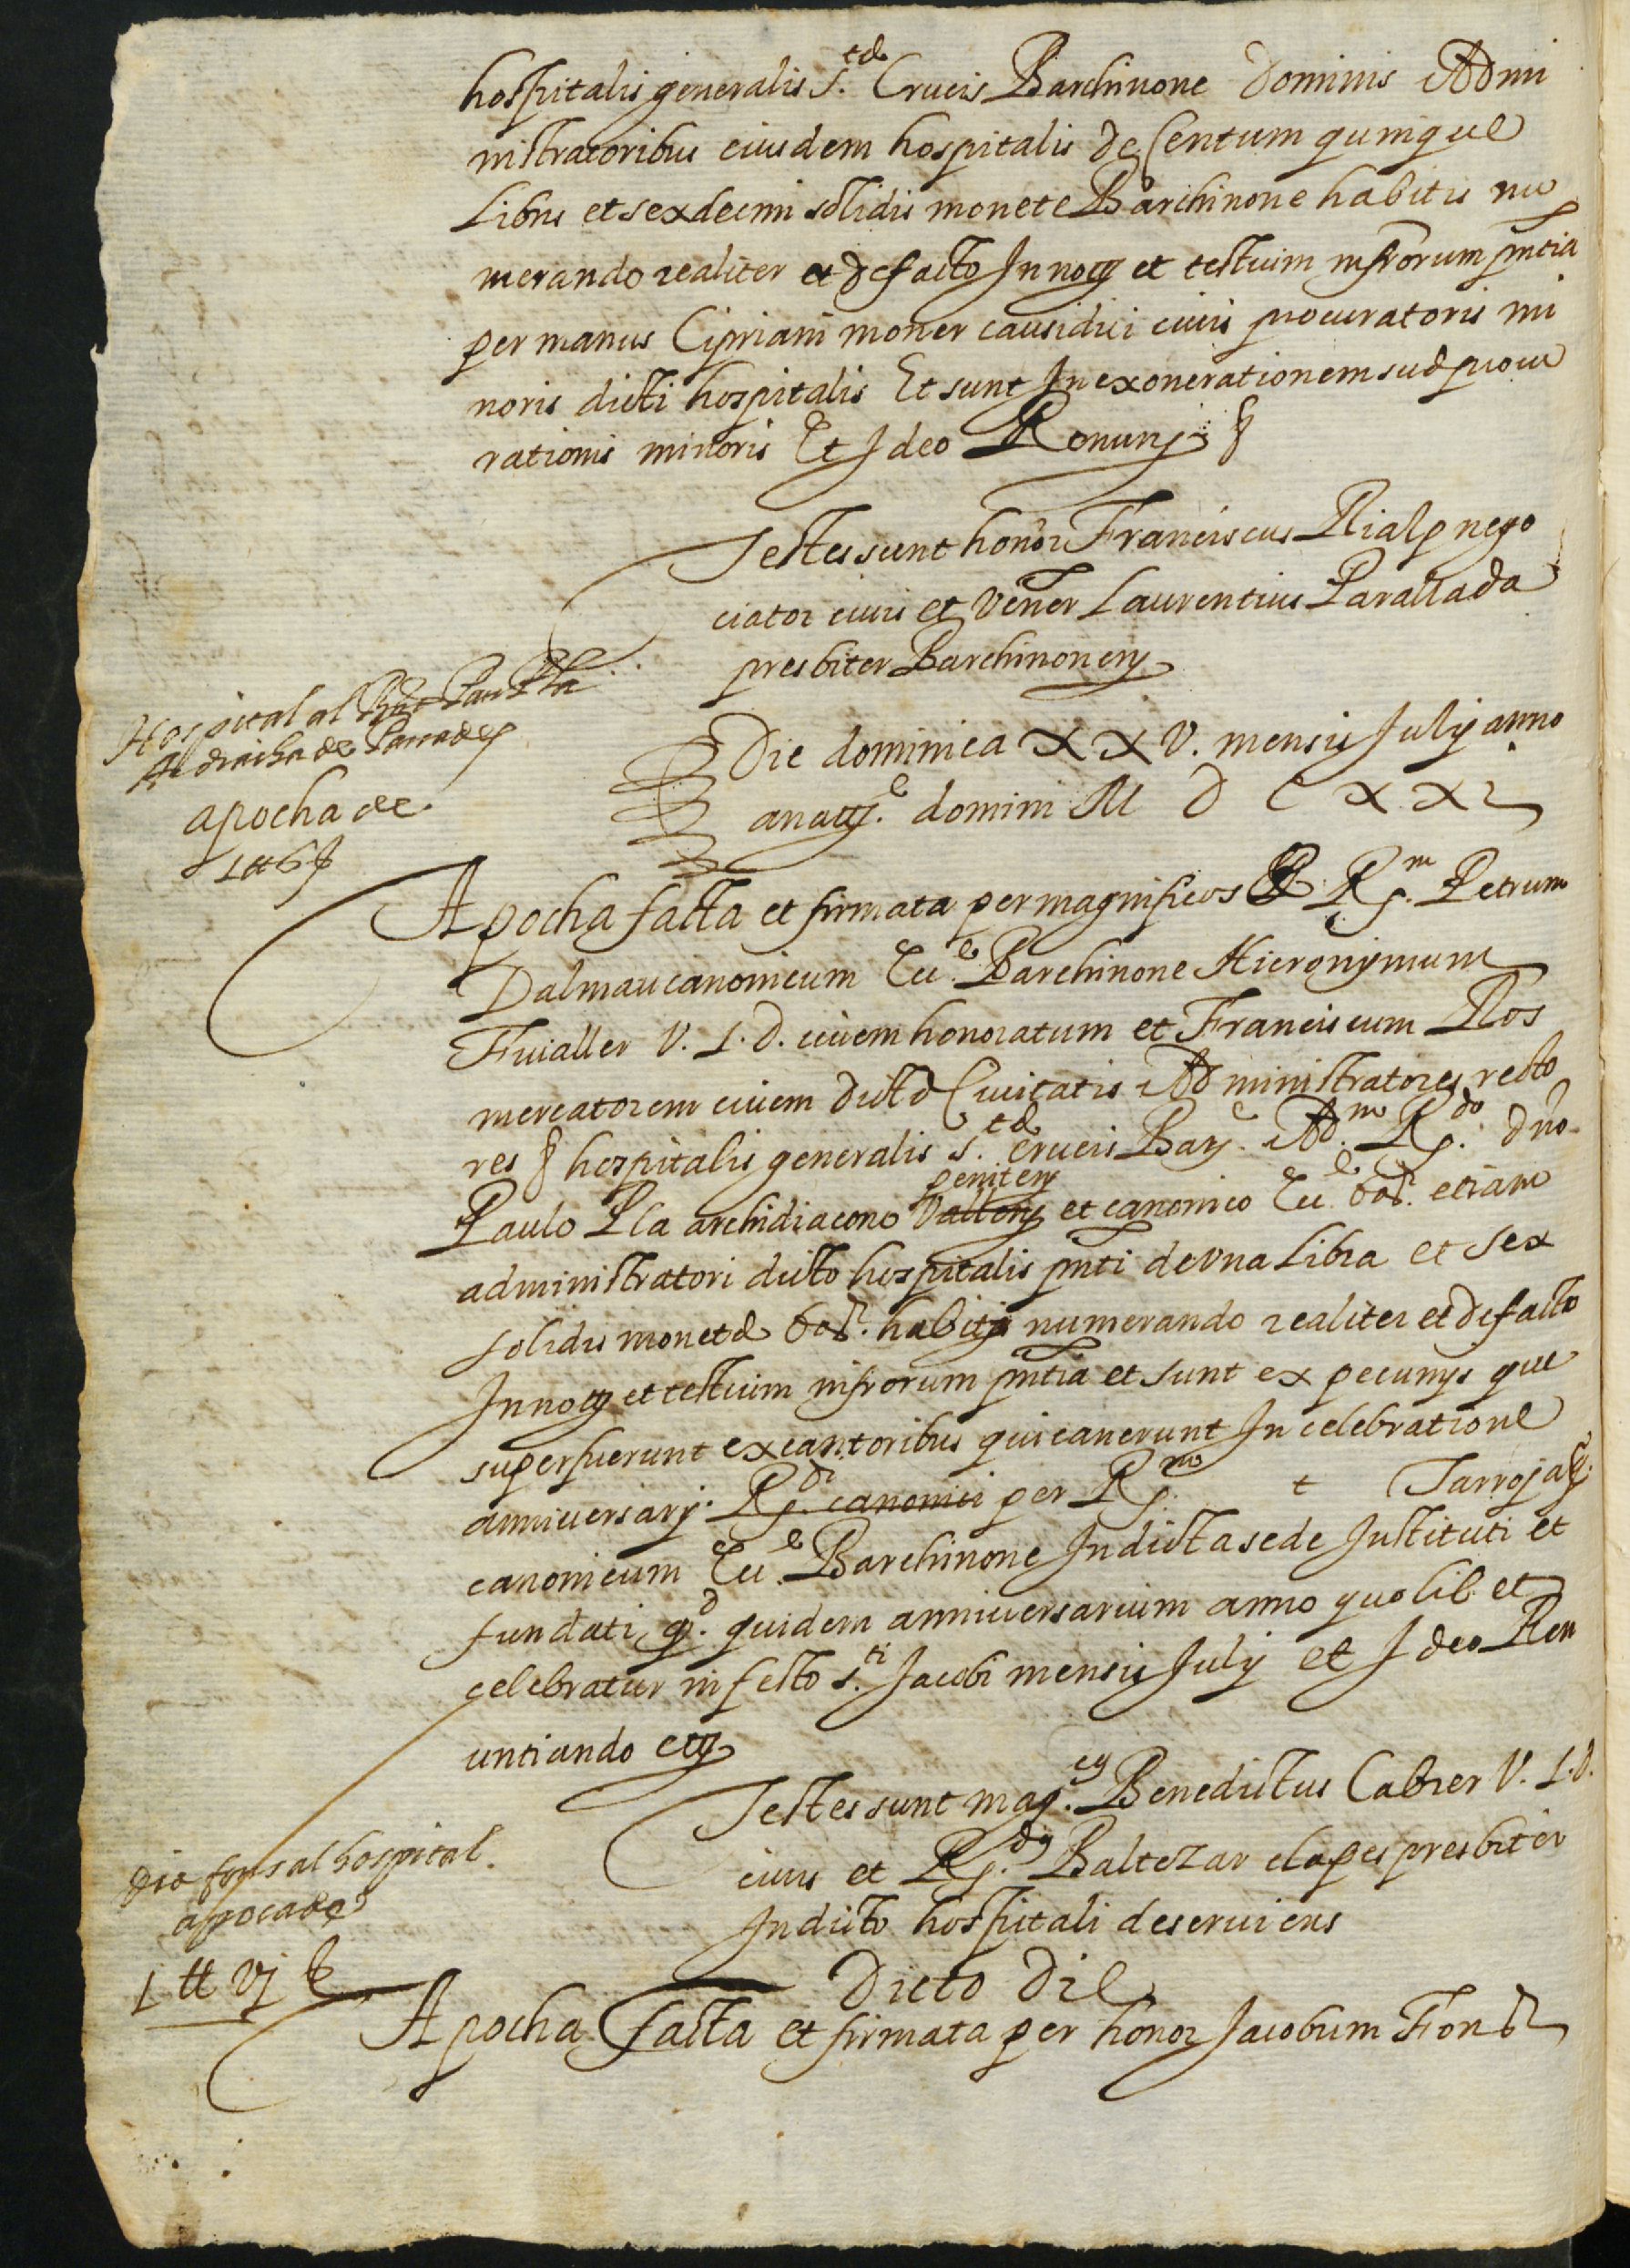 hospitalis generalis S.tæ Crucis Barchinone Dominis Admi
nistratoribus eiusdem hospitalis de Centum quinque
Libris et sexdecim solidis monete Barchinone habitis nu
merando realiter et de facto In no et testium infrorum pntia
per manus Cipriani moner causidici civis procuratoris mi
noris dicti hospitalis Et sunt In exonerationem suæ procu
rationis minoris Et Ideo Renun
Testes sunt honor Franciscus Rialp nego
ciator civis et Vener Laurentius Parallada
presbiter Barchinonen
Hospital al Pau Pla
Ardiacha de Panades
apocha de
1 tt 6 s
Die dominica XXV. mensis July anno
a natte. domini M D C XXI
Apocha facta et firmata per magnificos R.m Petrum
Dalmau canonicum Ecc.e Barchinone Hieronymum
Fivaller V. I. D. civem honoratum et Franciscum Ros
mercatorem civem dictæ Civitatis Administratores recto
res hospitalis generalis S.tæ crucis Bar.e Ad.m R.do dno
peniten
Paulo Pla archidiacono Vallen et canonico Ecc.e bar. etiam
administratori dicto hospitalis pnti de Una Libra et sex
solidis monetæ bar. habitis numerando realiter et de facto
In no et testium infrorum pntia et sunt ex pecunys que
superfuerunt ex cantoribus qui canerunt In celebratione
anniversary. R.di canonici per R.m t Tarroja
canonicum Ecc.e Barchinone In dicta sede Instituti et
fundati, q.d quidem anniversarium anno quolibet
celebratur in festo S.ti Jacobi mensis July et Ideo Ren
untiando etc
Testes sunt mag.cs Benedictus Cabrer V. I. D.
civis et R.ds Baltezar clapes presbiter
In dicto hospitali deserviens
fons al hospital.
apoca de
1 tt VI s
Dicto Die
Apocha facta et firmata per honor Jacobum Fons